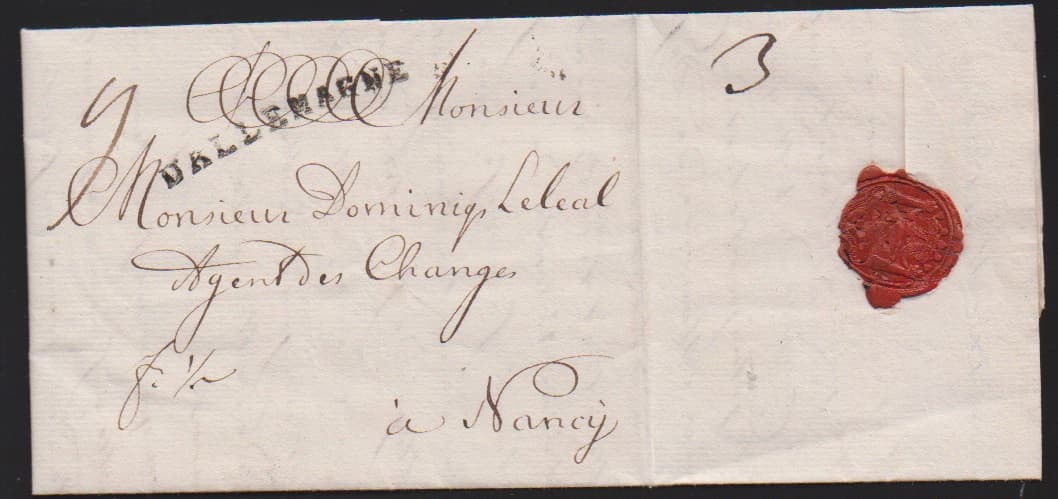 9
3
Monsieur
D'ALLEMAGNE
Monsieur Dominiq Leleal
Agent des Changes
fr. 1/2
à Nancÿ